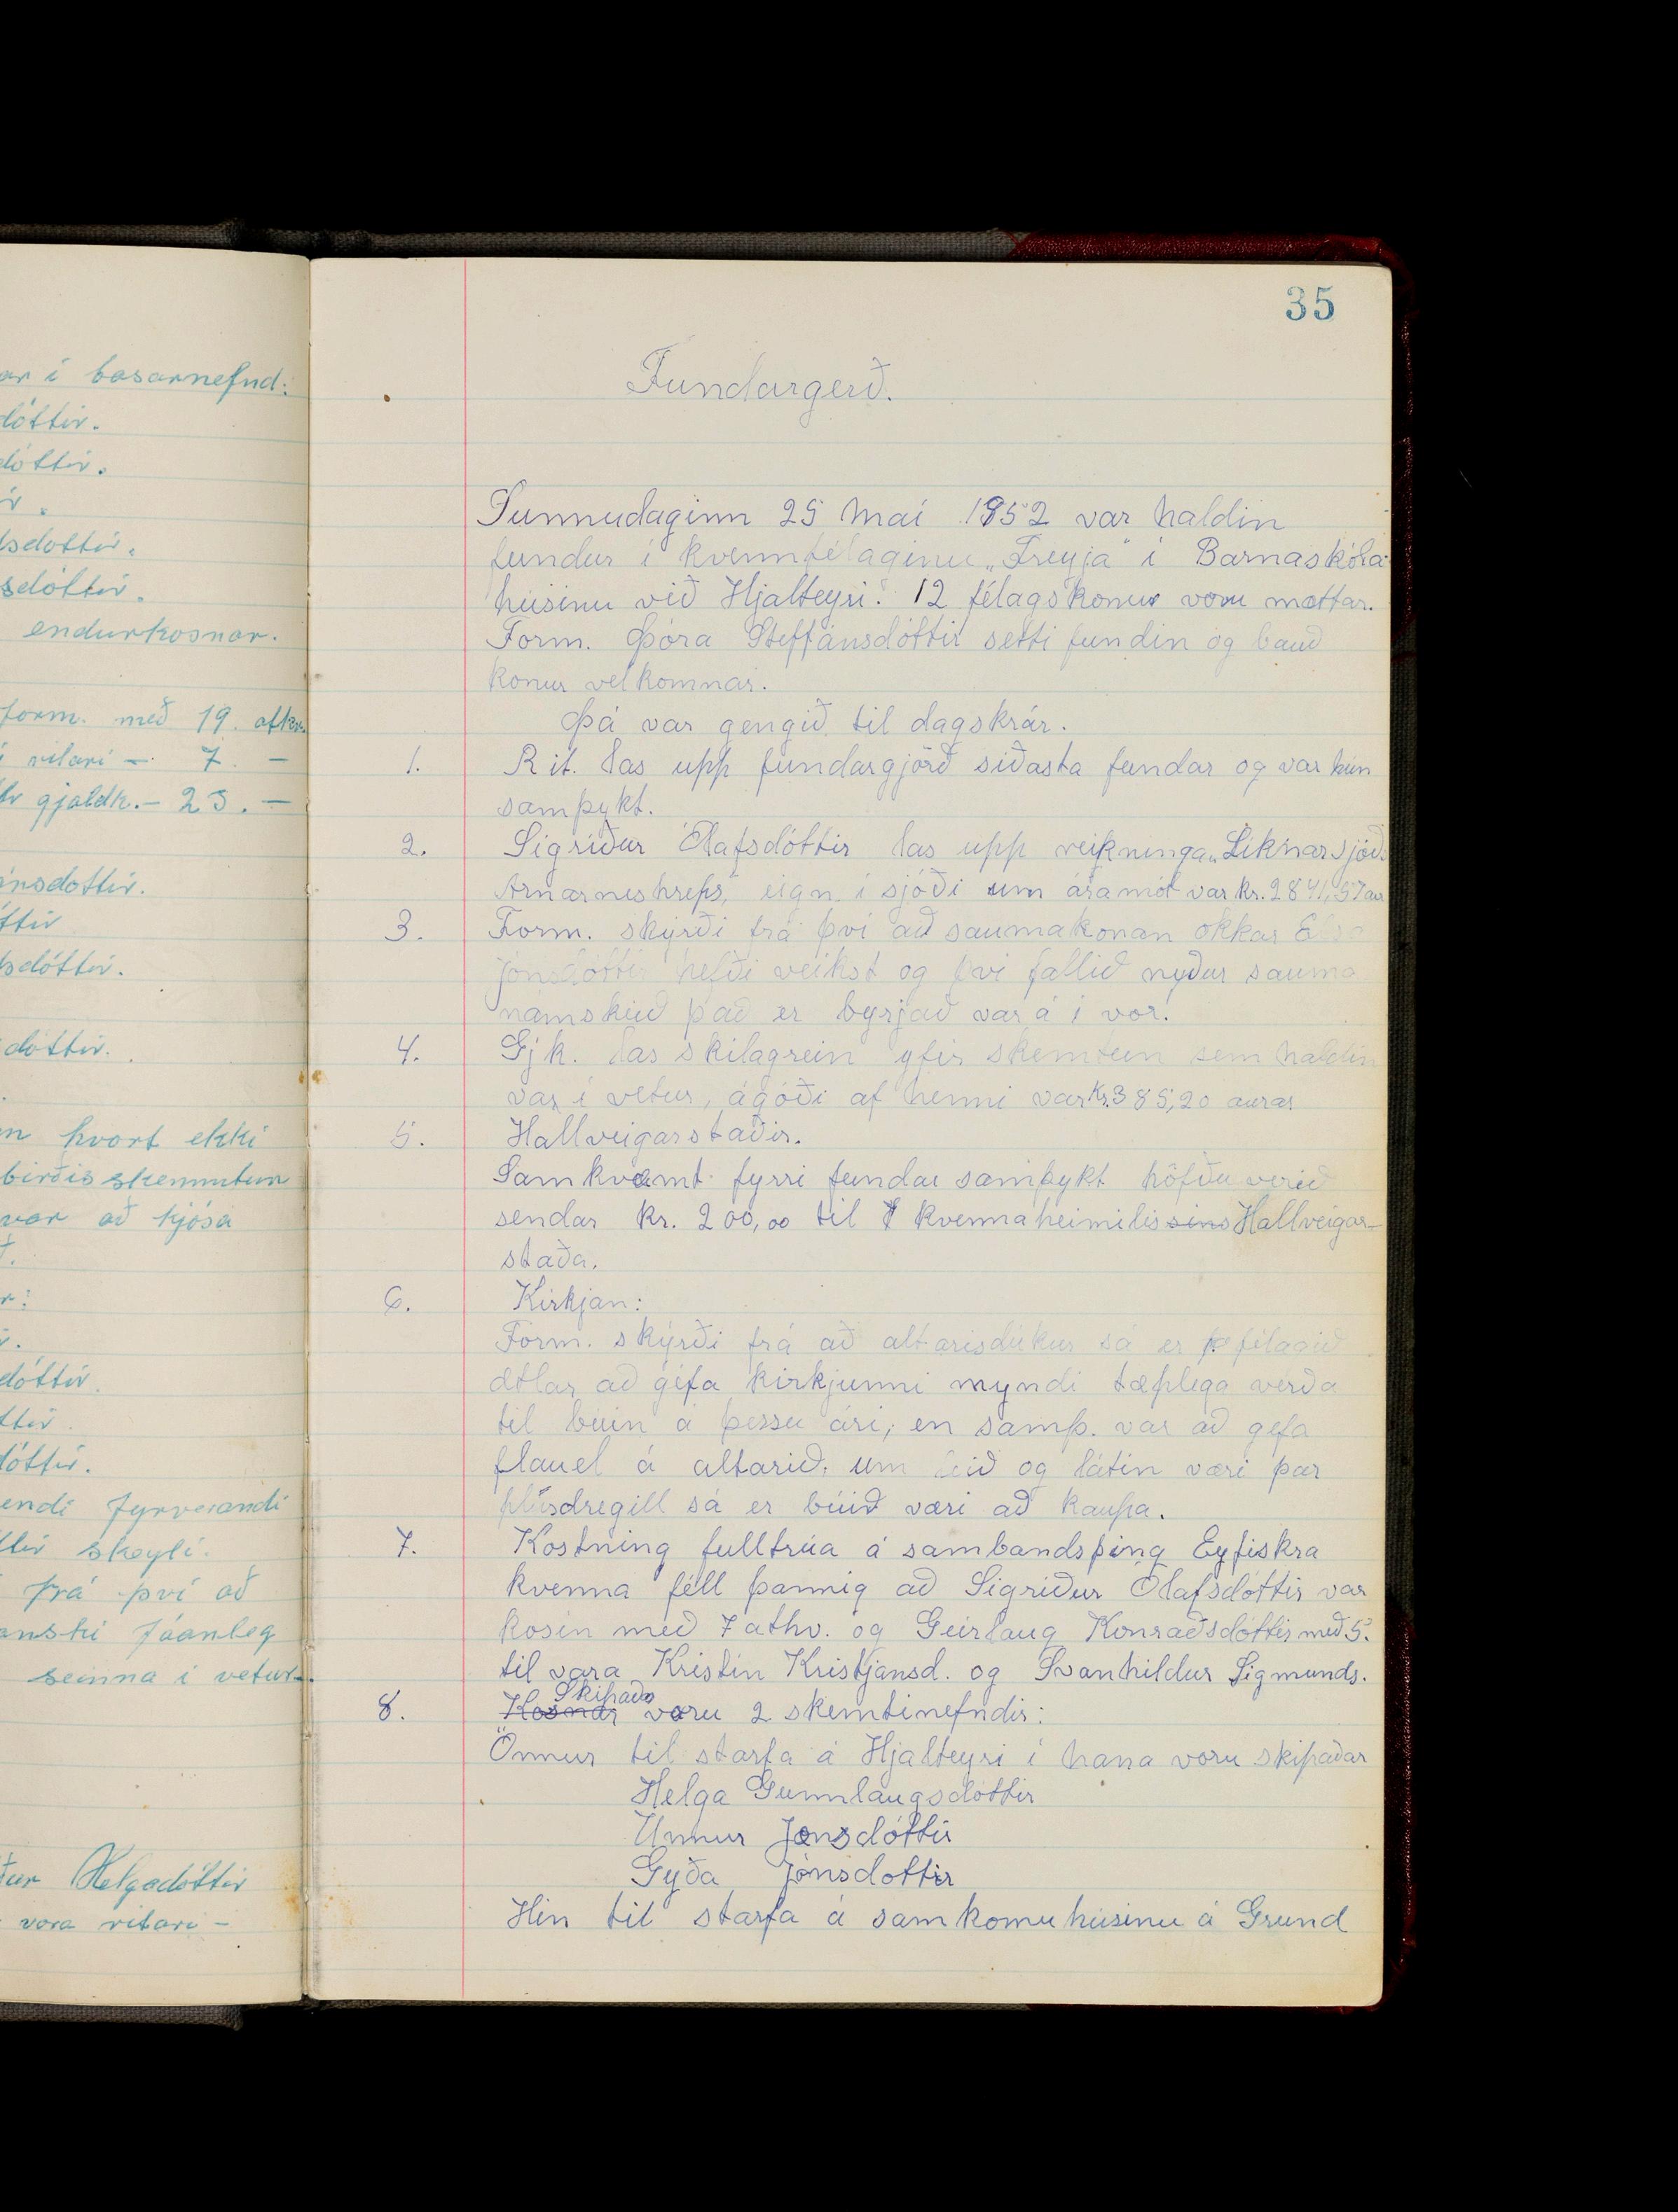 ar í basarnefnd:
dóttir.
dóttir.
ir.
lsdóttir.
sdóttir.
endurkosnar.
form. með 19. atkv.
í ritari — 7. —
ir gjaldk. — 23. —
ánsdóttir.
óttir
lsdóttir.
dóttir.
n hvort ekki
birðis skemmtun
var að kjósa
r:
r.
dóttir.
ttir.
dóttir.
endi fyrverandi
ttir skeyti.
frá því að
anski fáanleg
seinna í vetur.
ður Helgadóttir
vara ritari —
35
Fundargerð.
Sunnudaginn 25 maí 1952 var haldin
fundur í kvennfélaginu „Freyja" í Barnaskóla
húsinu við Hjalteyri. 12 félagskonur voru mættar.
Form. Þóra Steffánsdóttir setti fundin og bauð
konur velkomnar.
Þá var gengið til dagskrár.
1. Rit. las upp fundargjörð síðasta fundar og var hún
samþykt.
2. Sigríður Ólafsdóttir las upp reikninga „Líknarsjóðs
Arnarneshreps, eign í sjóði um áramót var kr. 2841,57 au
3. Form. skýrði frá því að saumakonan okkar Elsa
Jónsdóttir hefði veikst og því fallið nyður sauma
námskeið það er byrjað var á í vor.
4. Gjk. las skilagrein yfir skemtun sem haldin
var í vetur, ágóði af henni var kr. 385,20 aurar
5. Hallveigarstaðir.
Samkvæmt fyrri fundar samþykt höfðu verið
sendar kr. 200,00 til kvennaheimilis sins Hallveigar-
staða.
6. Kirkjan:
Form. skýrði frá að altarisdúkur sá er félagið
ætlar að géfa kirkjunni myndi tæplega verða
til búin á þessu ári, en samþ. var að gefa
flauel á altarið, um leið og látin væri þar
plusdregill sá er búið væri að kaupa.
7. Kostning fulltrúa á sambandsþing Eyfiskra
kvenna féll þannig að Sigríður Ólafsdóttir var
kosin með 7 athv. og Geirlaug Konraðsdóttir með 5.
til vara Kristín Kristjánsd. og Svanhildur Sigmunds.
Skipaðar
8. Kosnar voru 2 skemtinefndir:
Önnur til starfa á Hjalteyri í hana voru skipaðar
Helga Gunnlaugsdóttir
Unnur Jónsdóttir
Gyða Jónsdottir
Hin til starfa á samkomuhúsinu á Grund